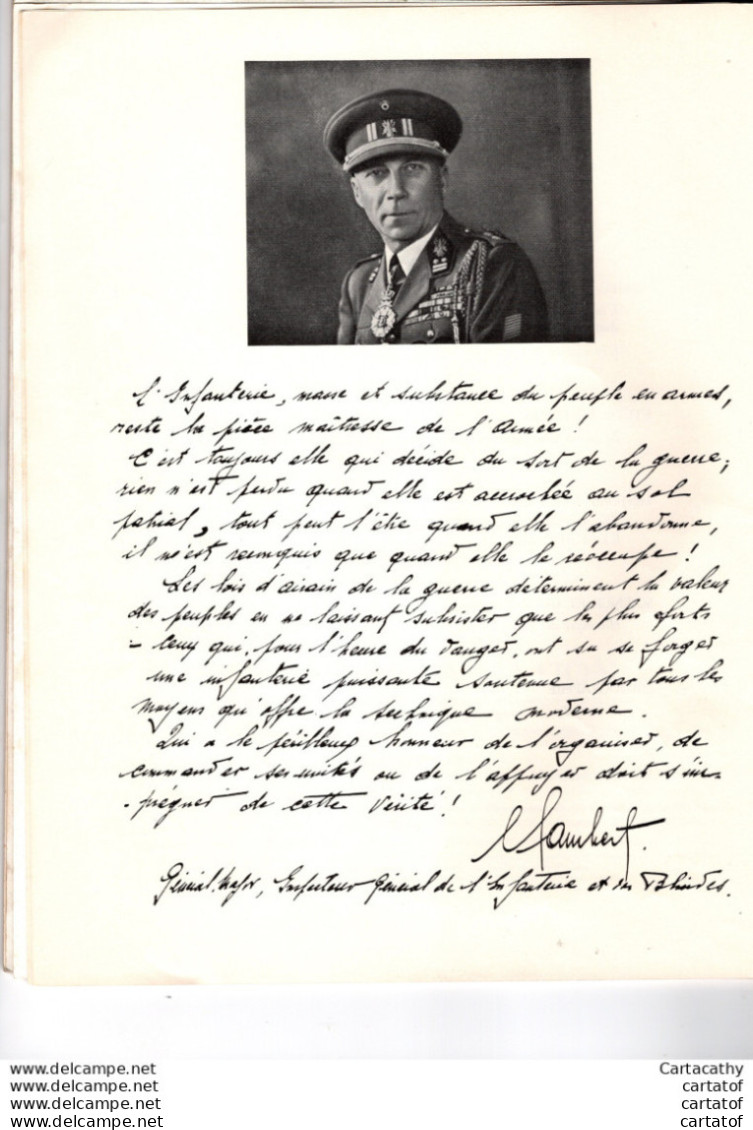 L'Infanterie, masse et substance du peuple en armes,
reste la pièce maîtresse de l'Armée !
C'est toujours elle qui décide du sort de la guerre ;
rien n'est perdu quand elle est accrochée au sol
patrial, tout peut l'être quand elle l'abandonne,
il n'est reconquis que quand elle le réoccupe !
Les lois d'airain de la guerre déterminent la valeur
des peuples en ne laissant subsister que les plus forts
- ceux qui, pour l'heure du danger, ont su se forger
une infanterie puissante soutenue par tous les
moyens qu'offre la technique moderne.
Qui a le périlleux honneur de l'organiser, de
commander ses unités ou de l'appuyer doit s'im-
- prégner de cette vérité !
Lambert.
Général-Major, Inspecteur Général de l'Infanterie et des Blindés.
www.delcampe.net
www.delcampe.net
www.delcampe.net
www.delcampe.net
Cartacathy
cartatof
cartatof
cartatof